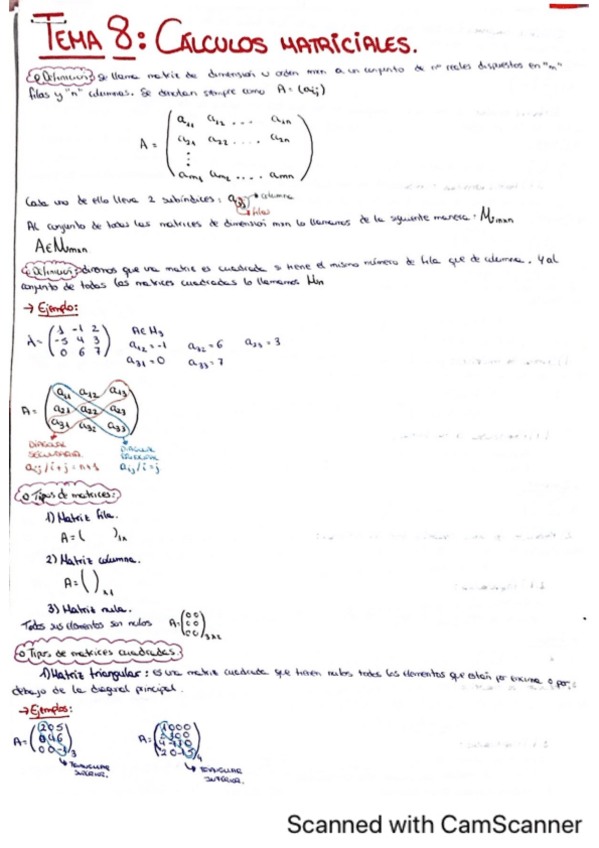 TEMA 8: CÁLCULOS MATRICIALES.
Definición: Se llama matriz de dimensión u orden mxn a un conjunto de nº reales dispuestos en "m"
filas y "n" columnas. Se denotan siempre como A = (aij)
A = ( a11 a12 .... a1n
a21 a22 .... a2n
⋮
am1 am2 .... amn )
Cada uno de ello lleva 2 subíndices: aij → columna
→ fila
Al conjunto de todas las matrices de dimensión mxn lo llamamos de la siguiente manera: Mmxn
A∈Mmxn
Definición: diremos que una matriz es cuadrada si tiene el mismo número de fila que de columna. Y al
conjunto de todas las matrices cuadradas lo llamamos Mn
→ Ejemplo:
A = ( 1 -1 2
-5 4 3
0 6 7 )
A∈M3
a12 = -1 a32 = 6 a23 = 3
a31 = 0 a33 = 7
A = ( a11 a12 a13
a21 a22 a23
a31 a32 a33 )
DIAGONAL SECUNDARIA
aij / i + j = n + 1
DIAGONAL PRINCIPAL
aij / i = j
Tipos de matrices:
1) Matriz fila.
A = ( )1x
2) Matriz columna.
A = ( )x1
3) Matriz nula.
Todos sus elementos son nulos A = ( 0 0
0 0
0 0 )3x2
Tipos de matrices cuadradas.
1) Matriz triangular: es una matriz cuadrada que tienen nulos todos los elementos que están por encima o por
debajo de la diagonal principal.
→ Ejemplos:
A = ( 2 0 5
0 4 6
0 0 -1 )3
→ TRIANGULAR SUPERIOR.
→ TRIANGULAR INFERIOR.
Scanned with CamScanner